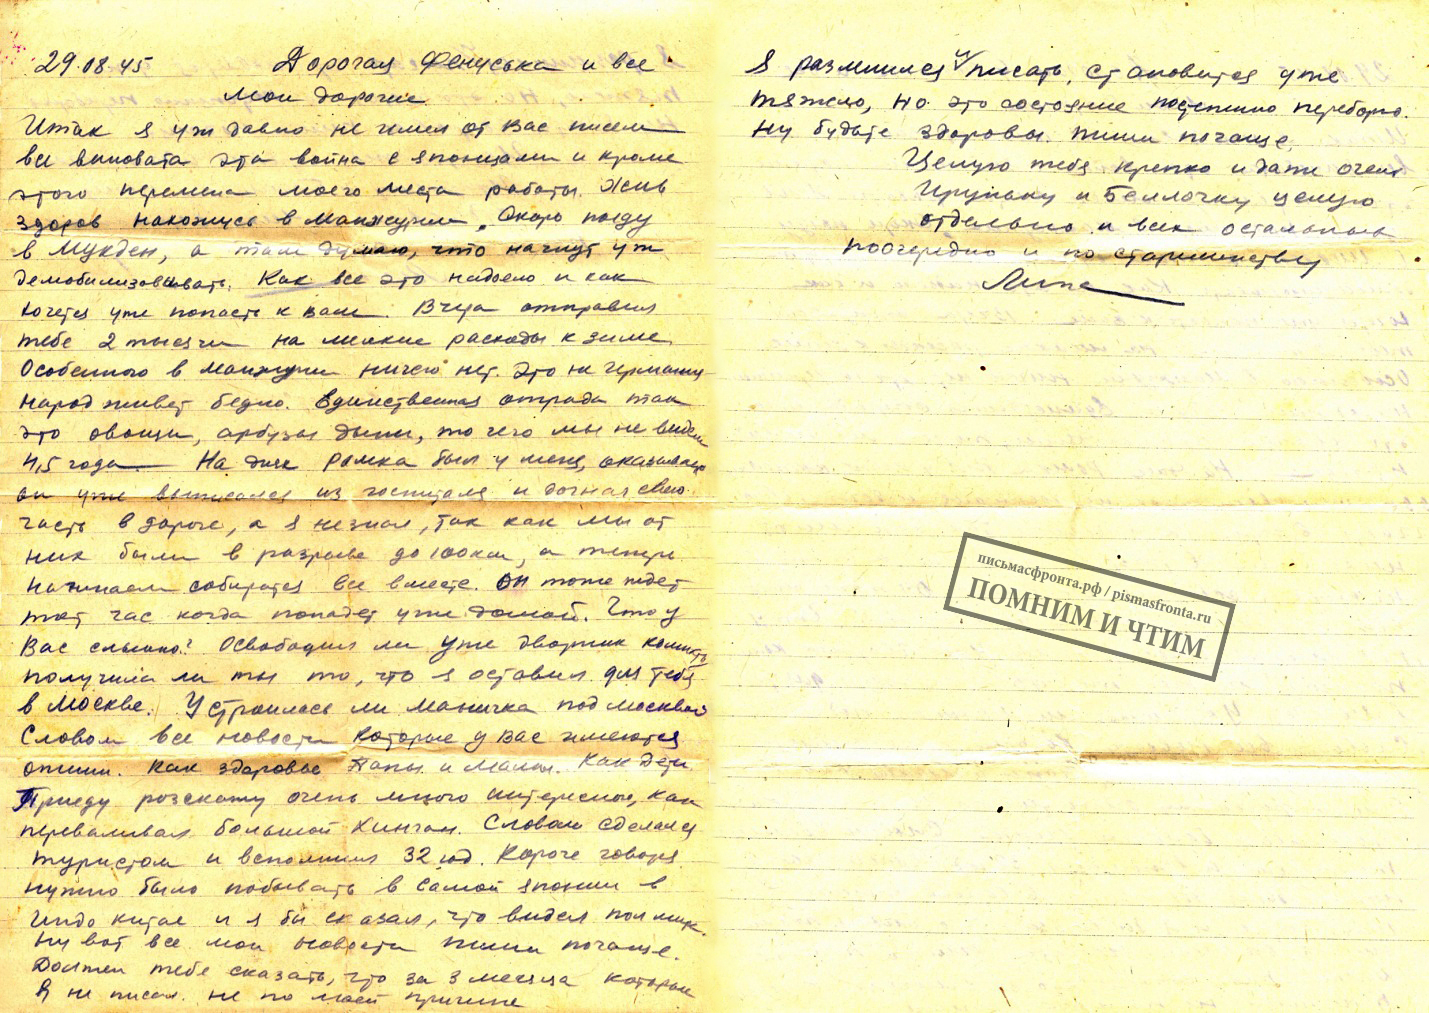 29.08.45 Дорогая Фенуська и все
мои дорогие
Итак я уж давно не имел от вас писем
все виновата эта война с японцами и кроме
этого перемена моего места работы. Жив
здоров нахожусь в Манжурии. Скоро поеду
в Мукден, а там думаю, что начнут уж
демобилизовывать. Как все это надоело и как
хочется уже попасть к вам. Вчера отправил
тебе 2 тысячи на мелкие расходы к зиме.
Особенного в Манжурии ничего нет. Это не Германия
народ живет бедно. Единственная отрада так
это овощи, арбузы дыни, то чего мы не видели
4,5 года. На днях Ромка был у меня, оказывается
он уже выписался из госпиталя и догнал свою
часть в дороге, а я не знал, так как мы от
них были в разрыве до 100 км, а теперь
начинаем собиратся все вместе. Он тоже ждет
тот час когда попадет уже домой. Что у
Вас слышно? Освободил ли уже дворник комнату
получила ли ты то, что я оставил для тебя
в Москве. Устроилась ли Маничка под Москвой
Словом все новости которые у вас имеются
опиши. Как здоровье Папы и Мамы. Как дети.
Приеду розскажу очень много интересного, как
переваливал большой Хинган. Словом сделался
туристом и вспомнил 32 год. Короче говоря
нужно было побывать в самой японии в
Индо китае и я бы сказал, что видел пол мира.
Ну вот все мои новости пиши почаще.
Должен тебе сказать, что за 3 месяца которые
я не писал не по моей причине
Я разленился писать, становится уже
тяжело, но это состояние постепенно переборю.
Ну будьте здоровы. Пиши почаще.
Целую тебя крепко и даже очень
Ируньку и Беллочку целую
отдельно и всех остальных
поочередно и по старшинству
письмасфронта.рф / pismasfronta.ru
ПОМНИМ И ЧТИМ